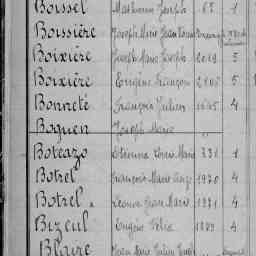 Boissel Mathurin Joseph 67 1
Boissière Joseph Marie Jean Louis
Boixière Joseph Marie Joseph 2019 5
Boixière Eugène François 2105 5
Bonneté François Julien 1645 4
Boquen Joseph Marie
Boteazo Etienne Louis Marie 331 1
Botrel François Marie Ange 1970 4
Botrel Leonce Jean Marie 1971 4
Bizeul Eugène Félix 1889 4
Blaire Jean Marie Julien